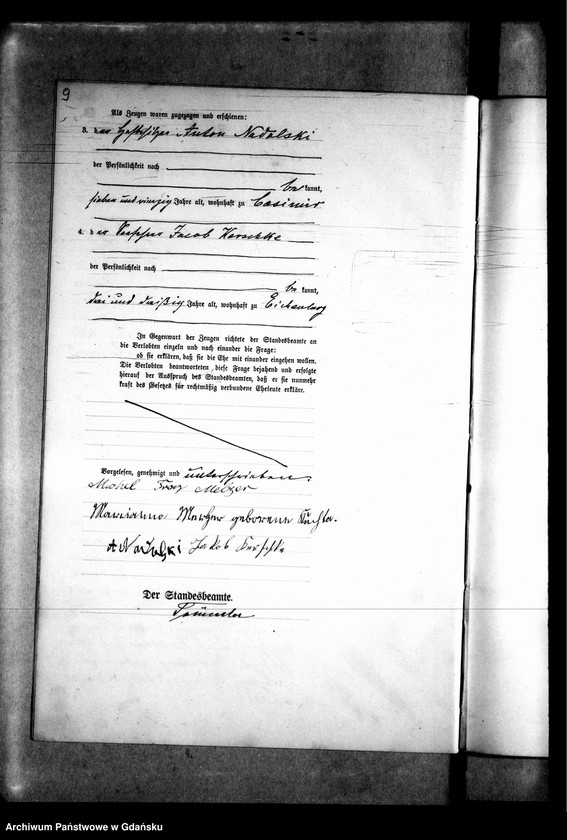 9
Als Zeugen waren zugezogen und erschienen:
3. der Hofbesitzer Anton Nadolski
der Persönlichkeit nach
be kannt,
sieben und vierzig Jahre alt, wohnhaft zu Casimir
4. der Jacob Kerschke
der Persönlichkeit nach
be kannt,
drei und dreißig Jahre alt, wohnhaft zu Eichenberg
In Gegenwart der Zeugen richtete der Standesbeamte an
die Verlobten einzeln und nach einander die Frage:
ob sie erklären, daß sie die Ehe mit einander eingehen wollen.
Die Verlobten beantworteten diese Frage bejahend und erfolgte
hierauf der Ausspruch des Standesbeamten, daß er sie nunmehr
kraft des Gesetzes für rechtmäßig verbundene Eheleute erkläre.
Vorgelesen, genehmigt und unterschrieben.
Franz
Marianna geborene Kuchta.
A Nadolski Jakob Kerschke
Der Standesbeamte.
Archiwum Państwowe w Gdańsku